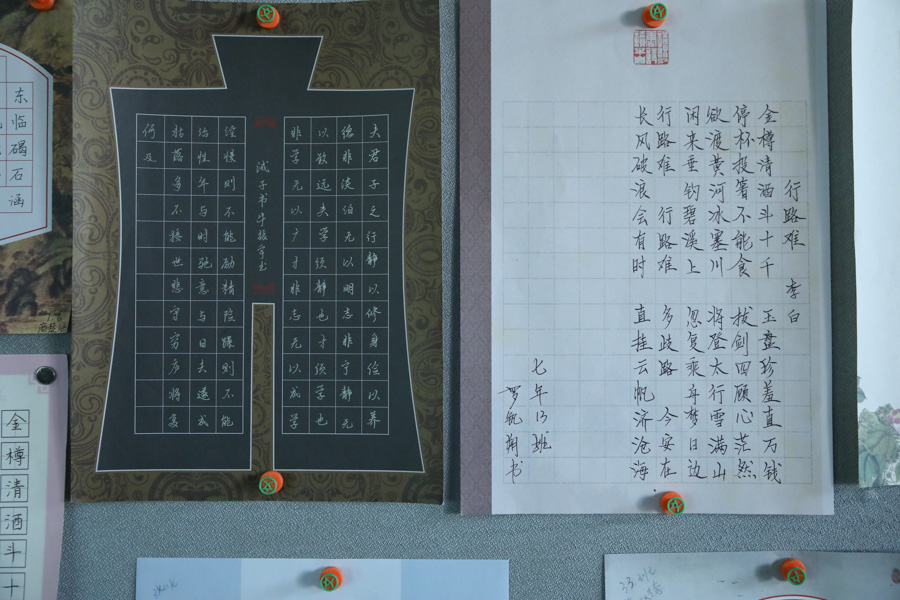 东临碣石
涵
夫君子之行静以修身俭以养
德非淡泊无以明志非宁静无
以致远夫学须静也才须学也
非学无以广才非志无以成学
诫子书
淫慢则不能励精险躁则不能
治性年与时驰意与日去遂成
枯落多不接世悲守穷庐将复
何及
行路难 李白
金樽清酒斗十千 玉盘珍羞直万钱
停杯投箸不能食 拔剑四顾心茫然
欲渡黄河冰塞川 将登太行雪满山
闲来垂钓碧溪上 忽复乘舟梦日边
行路难 行路难 多歧路 今安在
长风破浪会有时 直挂云帆济沧海
七年13班
金樽清酒斗十